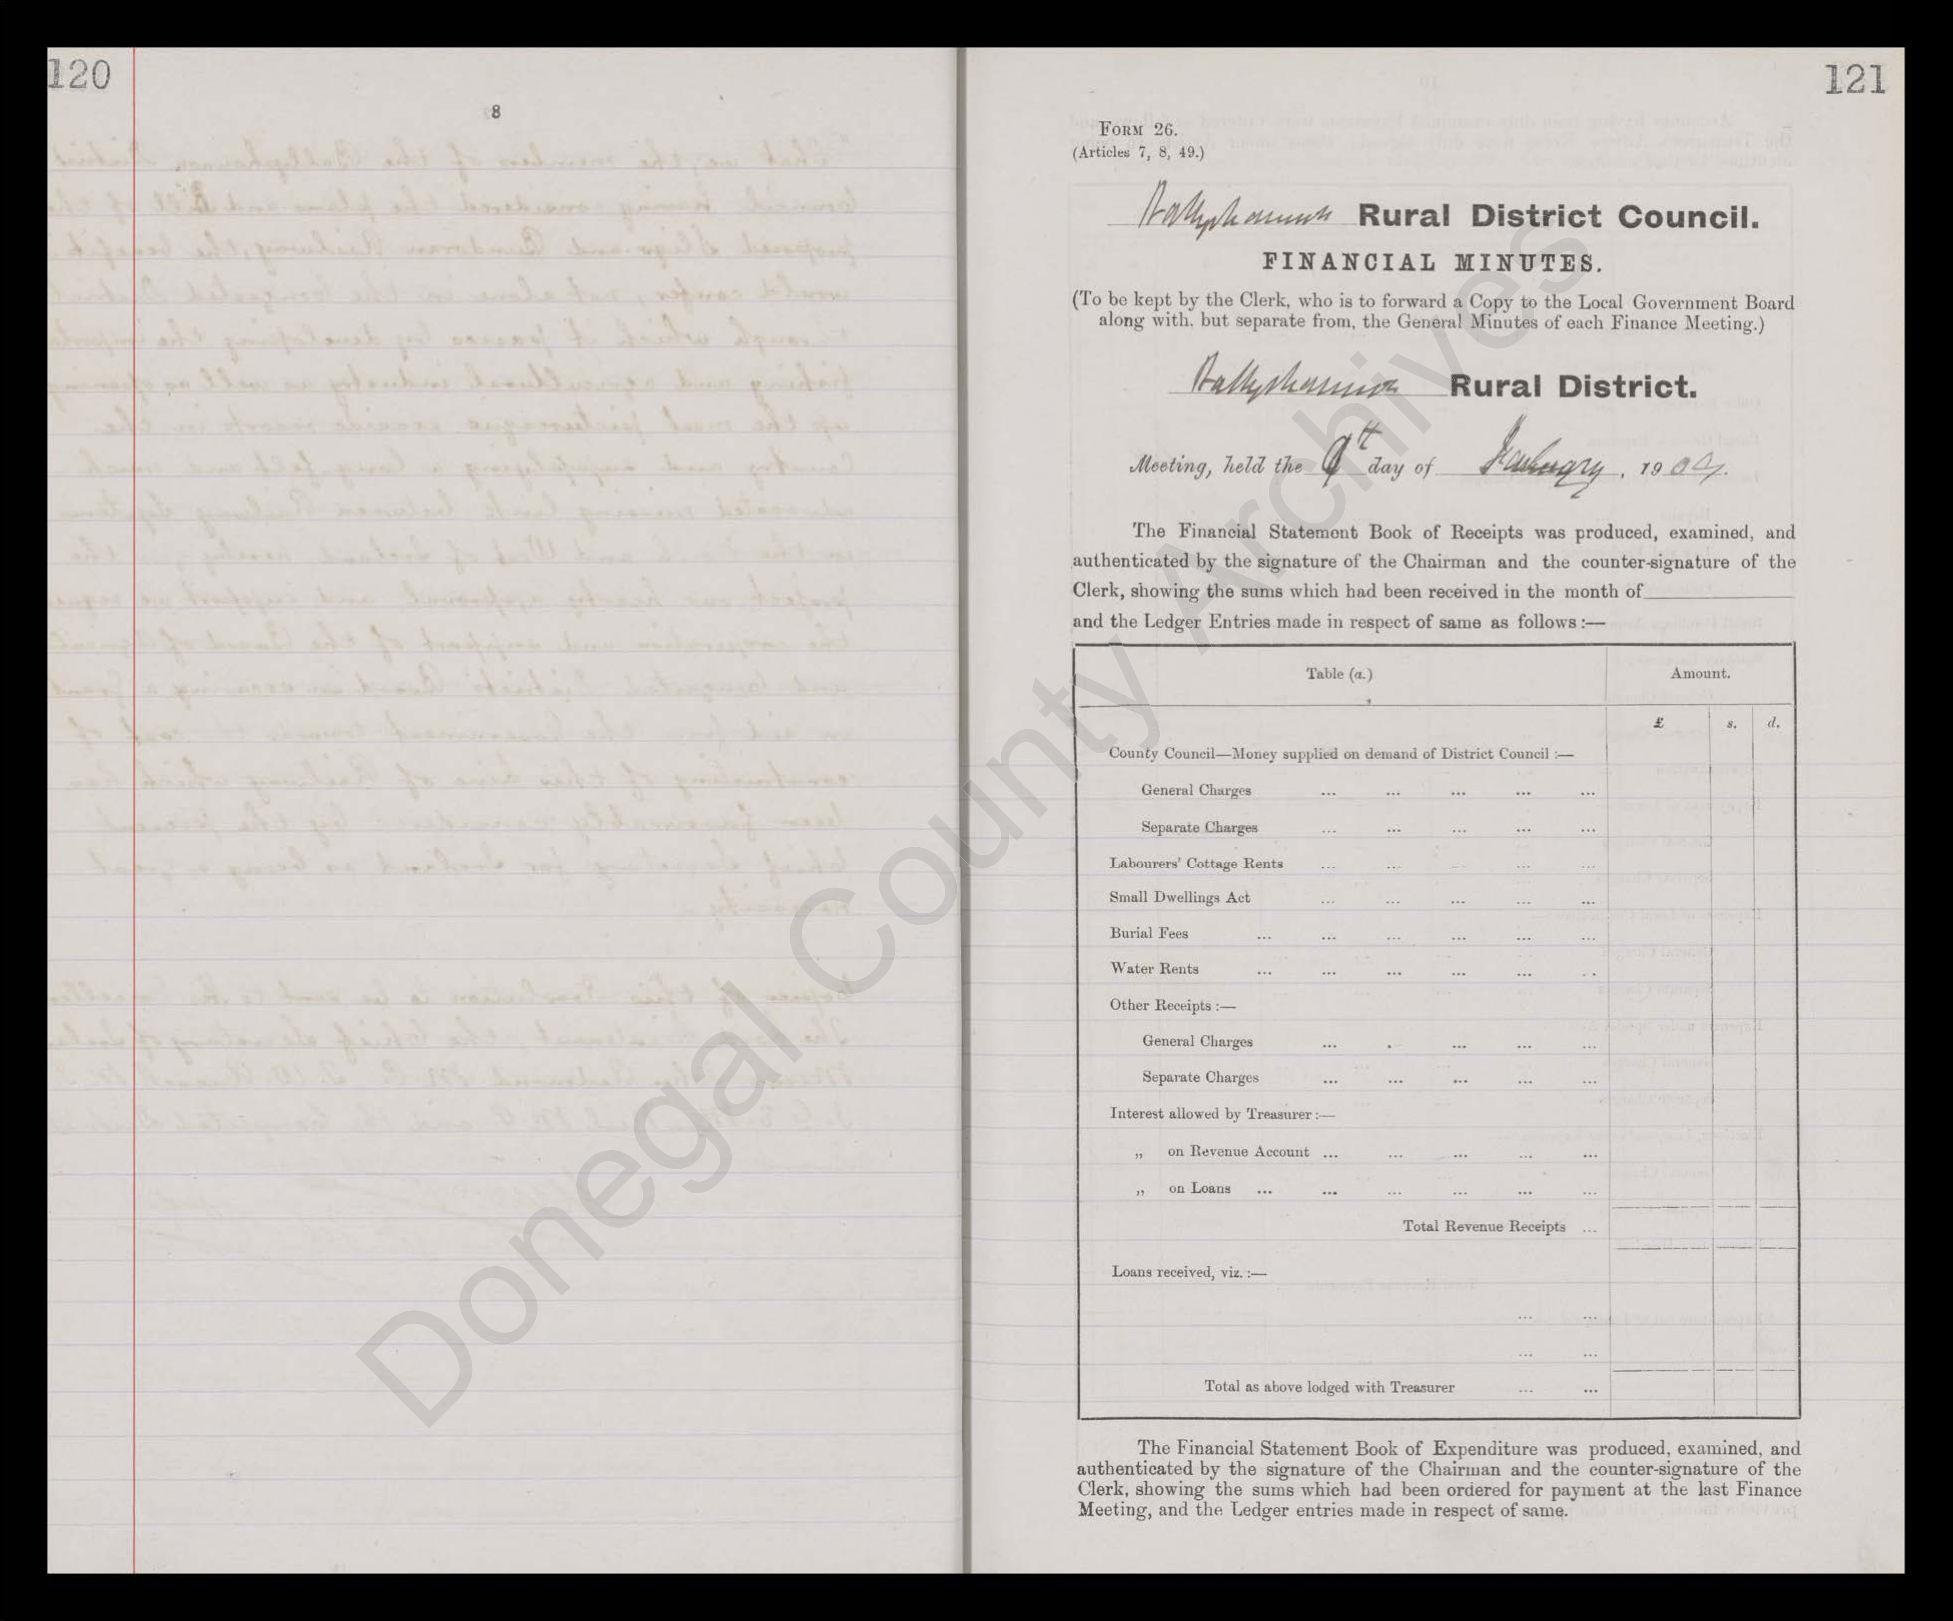 120
8
121
FORM 26.
(Articles 7, 8, 49.)
Ballyshannon Rural District Council.
FINANCIAL MINUTES.
(To be kept by the Clerk, who is to forward a Copy to the Local Government Board
along with, but separate from, the General Minutes of each Finance Meeting.)
Ballyshannon Rural District.
Meeting, held the 9th day of January, 1904.
The Financial Statement Book of Receipts was produced, examined, and
authenticated by the signature of the Chairman and the counter-signature of the
Clerk, showing the sums which had been received in the month of
and the Ledger Entries made in respect of same as follows :—
Table (a.) Amount.
£ s. d.
County Council—Money supplied on demand of District Council :—
General Charges ... ... ... ... ...
Separate Charges ... ... ... ... ...
Labourers' Cottage Rents ... ... ... ... ...
Small Dwellings Act ... ... ... ... ...
Burial Fees ... ... ... ... ... ...
Water Rents ... ... ... ... ... ...
Other Receipts :—
General Charges ... . ... ... ...
Separate Charges ... ... ... ... ...
Interest allowed by Treasurer :—
„ on Revenue Account ... ... ... ... ...
„ on Loans ... ... ... ... ... ...
Total Revenue Receipts ...
Loans received, viz. :—
... ...
... ...
Total as above lodged with Treasurer ... ...
The Financial Statement Book of Expenditure was produced, examined, and
authenticated by the signature of the Chairman and the counter-signature of the
Clerk, showing the sums which had been ordered for payment at the last Finance
Meeting, and the Ledger entries made in respect of same.
Donegal County Archives